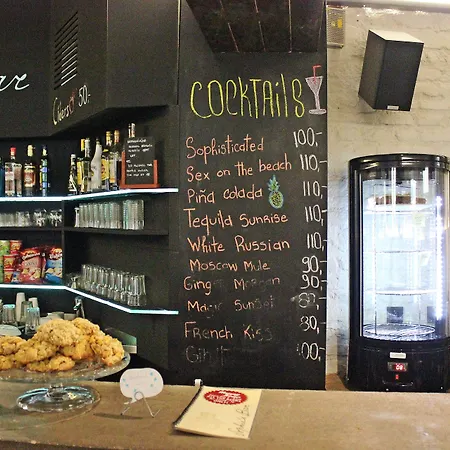 ar
50.-
COCKTAILS
Sophisticated 100,-
Sex on the beach 110,-
Piña colada 110,-
Tequila Sunrise 110,-
White Russian 110,-
Moscow Mule 90,-
Ginger Morgan 90,-
Magic Sunset 80,-
French Kiss 80,-
100,-